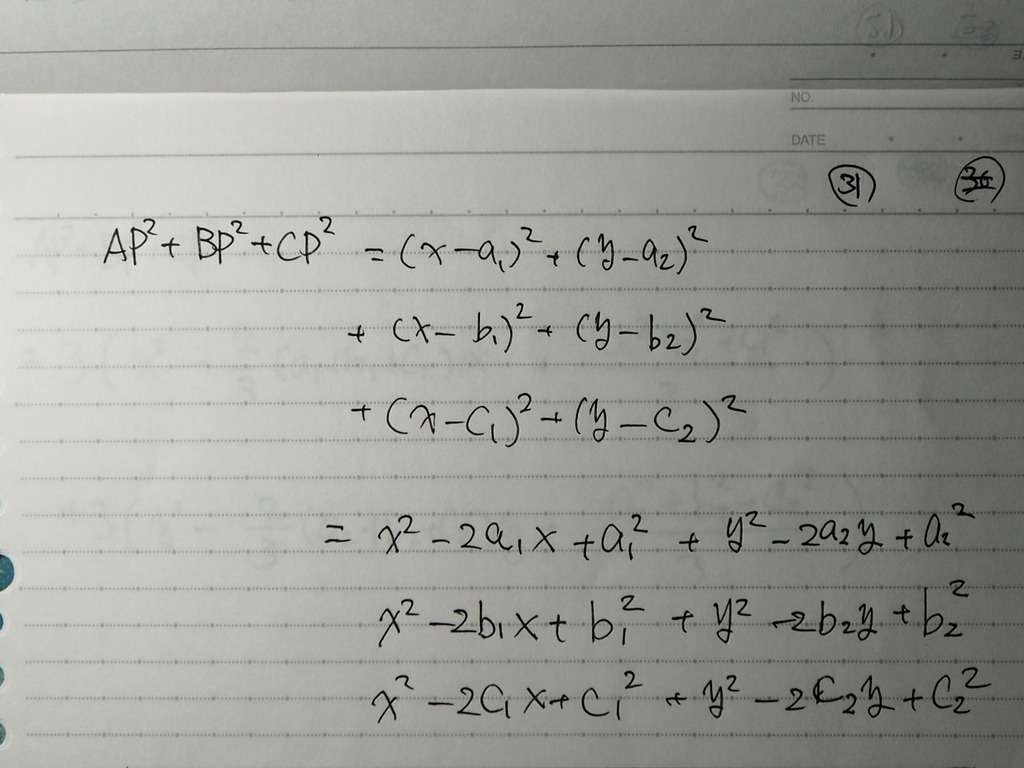 NO.
DATE
31
AP² + BP² + CP² = (x - a₁)² + (y - a₂)²
+ (x - b₁)² + (y - b₂)²
+ (x - c₁)² + (y - c₂)²
= x² - 2a₁x + a₁² + y² - 2a₂y + a₂²
x² - 2b₁x + b₁² + y² - 2b₂y + b₂²
x² - 2c₁x + c₁² + y² - 2c₂y + c₂²